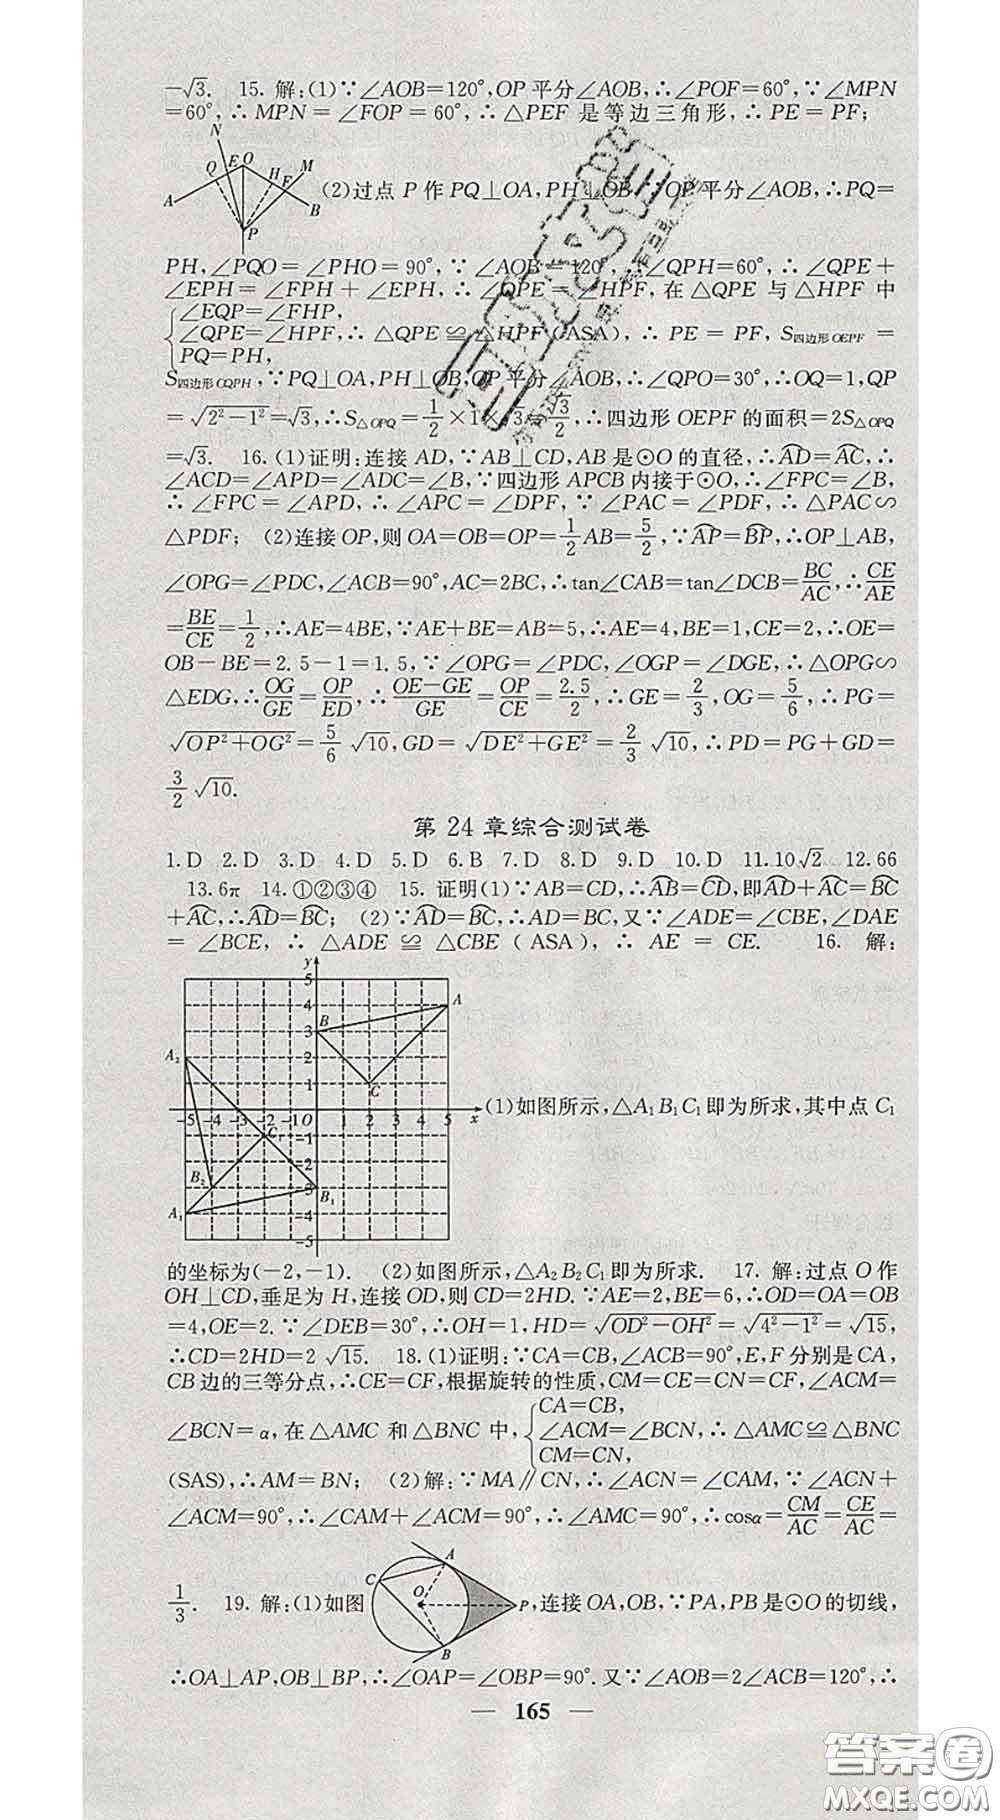 −√3. 15. 解:(1)∵∠AOB=120°,OP平分∠AOB,∴∠POF=60°,∵∠MPN
=60°,∴∠MPN=∠FOP=60°,∴△PEF是等边三角形,∴PE=PF;
N
Q E O H F M
A B
P
(2)过点P作PQ⊥OA,PH⊥OB,∵OP平分∠AOB,∴PQ=
PH,∠PQO=∠PHO=90°,∵∠AOB=120°,∴∠QPH=60°,∴∠QPE+
∠EPH=∠FPH+∠EPH,∴∠QPE=∠HPF,在△QPE与△HPF中
∠EQP=∠FHP,
∠QPE=∠HPF,∴△QPE≌△HPF(ASA),∴PE=PF,S四边形OEPF=
PQ=PH,
S四边形OQPH,∵PQ⊥OA,PH⊥OB,OP平分∠AOB,∴∠QPO=30°,∴OQ=1,QP
=√(2²−1²)=√3,∴S△OPQ=1/2×1×√3=√3/2,∴四边形OEPF的面积=2S△OPQ
=√3. 16.(1)证明:连接AD,∵AB⊥CD,AB是⊙O的直径,∴AD⌒=AC⌒,∴
∠ACD=∠APD=∠ADC=∠B,∵四边形APCB内接于⊙O,∴∠FPC=∠B,
∴∠FPC=∠APD,∴∠APC=∠DPF,∵∠PAC=∠PDF,∴△PAC∽
△PDF; (2)连接OP,则OA=OB=OP=1/2AB=5/2,∵AP⌒=BP⌒,∴OP⊥AB,
∠OPG=∠PDC,∠ACB=90°,AC=2BC,∴tan∠CAB=tan∠DCB=BC/AC,∴CE/AE
=BE/CE=1/2,∴AE=4BE,∵AE+BE=AB=5,∴AE=4,BE=1,CE=2,∴OE=
OB−BE=2.5−1=1.5,∵∠OPG=∠PDC,∠OGP=∠DGE,∴△OPG∽
△EDG,∴OG/GE=OP/ED,∴(OE−GE)/GE=OP/CE=2.5/2,∴GE=2/3,OG=5/6,∴PG=
√(OP²+OG²)=5/6√10,GD=√(DE²+GE²)=2/3√10,∴PD=PG+GD=
3/2√10.
第24章综合测试卷
1.D 2.D 3.D 4.D 5.D 6.B 7.D 8.D 9.D 10.D 11.10√2 12.66
13.6π 14.①②③④ 15.证明(1)∵AB=CD,∴AB⌒=CD⌒,即AD⌒+AC⌒=BC⌒
+AC⌒,∴AD⌒=BC⌒; (2)∵AD⌒=BC⌒,∴AD=BC,又∵∠ADE=∠CBE,∠DAE
=∠BCE,∴△ADE≌△CBE(ASA),∴AE=CE. 16.解:
y
5
4 A
3 B
2 A₂
1 C
−5 −4 −3 −2 −1 O 1 2 3 4 5 x
−1 C₁
−2
−3 B₂ B₁
−4 A₁
−5
(1)如图所示,△A₁B₁C₁即为所求,其中点C₁
的坐标为(−2,−1). (2)如图所示,△A₂B₂C₁即为所求. 17.解:过点O作
OH⊥CD,垂足为H,连接OD,则CD=2HD.∵AE=2,BE=6,∴OD=OA=OB
=4,OE=2.∵∠DEB=30°,∴OH=1,HD=√(OD²−OH²)=√(4²−1²)=√15,
∴CD=2HD=2√15. 18.(1)证明:∵CA=CB,∠ACB=90°,E,F分别是CA,
CB边的三等分点,∴CE=CF,根据旋转的性质,CM=CE=CN=CF,∠ACM=
∠BCN=α,在△AMC和△BNC中,
CA=CB,
∠ACM=∠BCN,∴△AMC≌△BNC
CM=CN,
(SAS),∴AM=BN; (2)解:∵MA∥CN,∴∠ACN=∠CAM,∵∠ACN+
∠ACM=90°,∴∠CAM+∠ACM=90°,∴∠AMC=90°,∴cosα=CM/AC=CE/AC=
1/3. 19.解:(1)如图
A
C
O
P
B
,连接OA,OB,∵PA,PB是⊙O的切线,
∴OA⊥AP,OB⊥BP,∴∠OAP=∠OBP=90°.又∵∠AOB=2∠ACB=120°,∴
— 165 —
答案圈
MXQE.COM